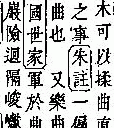 木可以揉曲直
之事朱註一偏
曲也又樂曲
國世家軍於曲
嚴險迴隔峻